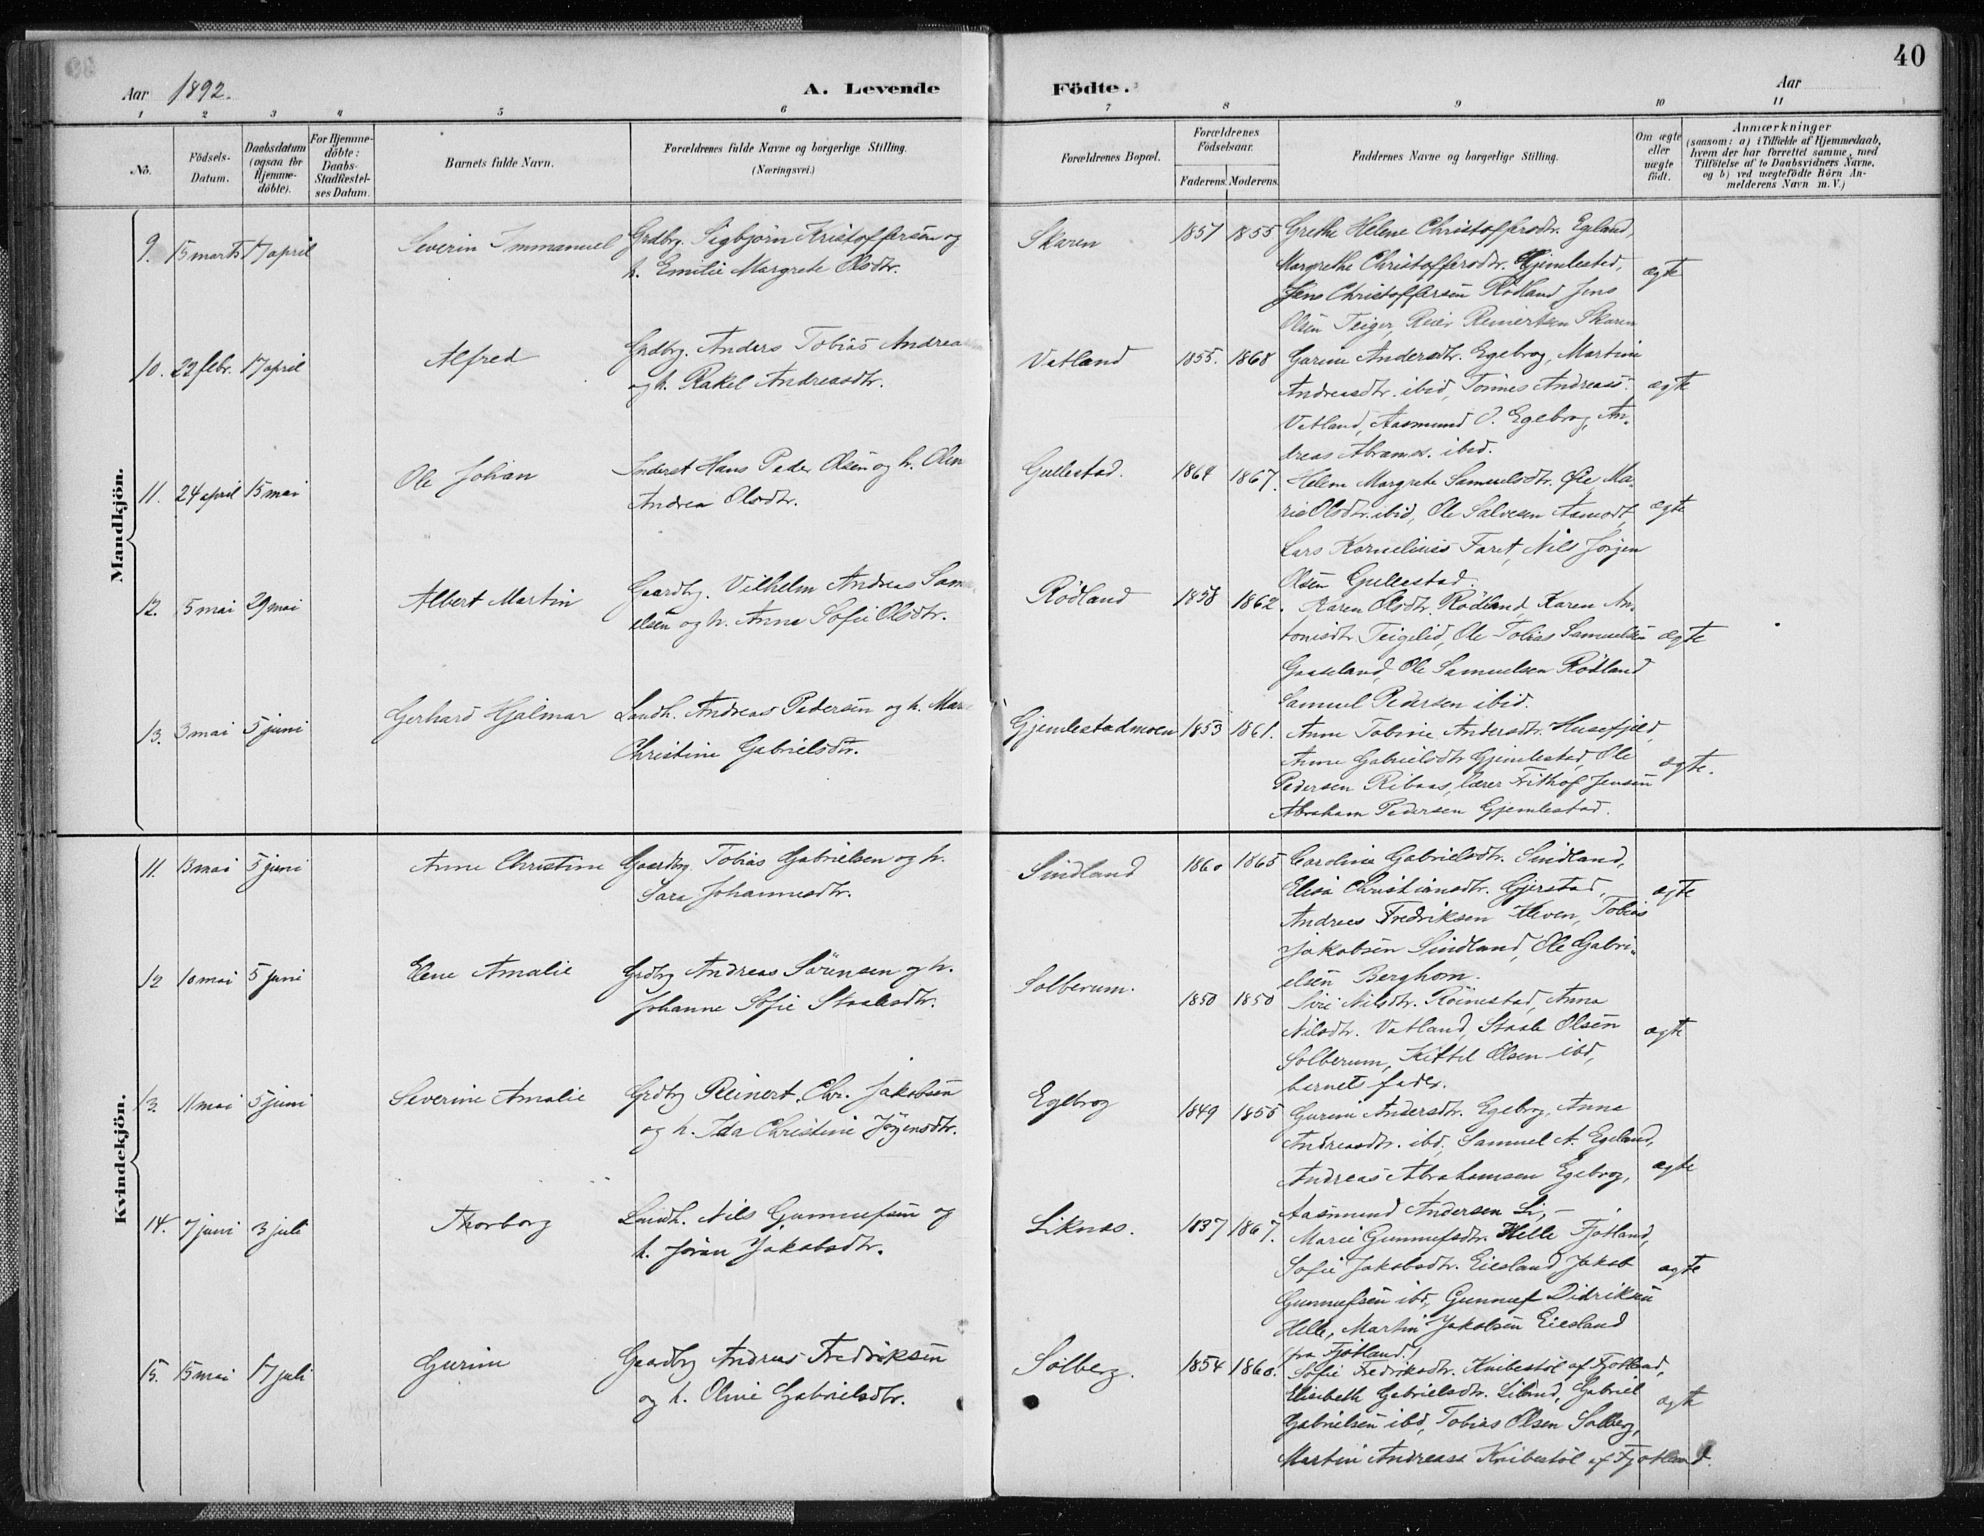 40
Aar 1892.
A. Levende
Födte.
Aar
1 2 3 4 5 6 7 8 9 10 11
No.
Födsels-
Datum.
Daabsdatum
(ogsaa för
Hjemme-
döbte).
For Hjemme-
döbte:
Daabs-
Stadfestel-
ses Datum.
Barnets fulde Navn.
Forældrenes fulde Navne og borgerlige Stilling.
(Næringsvei.)
Forældrenes Bopæl.
Forældrenes
Födselsaar.
Faderens. Moderens.
Faddernes Navne og borgerlige Stilling.
Om ægte
eller
uægte
födt.
Anmærkninger
(saasom: a) i Tilfælde af Hjemmedaab,
hvem der har forrettet samme, med
Tilföielse af to Daabsvidners Navne,
og b) ved uægtefödte Börn An-
melderens Navn m. V.)
Mandkjön.
9. 15 marts 17 april Severin Immanuel Grdbrg. Sigbjørn Kristoffersen og Skaren 1857 1855 Grethe Helene Christoffersdtr. Egeland,
h. Emilie Margrete Olsdtr. Margrethe Christoffersdtr. Gjemlestad, ægte
Jens Christoffersen Rødland Jens
Olsen Teiger, Reier Reinertsen Skaren
10. 22 febr. 17 april Alfred Grdbrg. Anders Tobias Andrea Vatland 1855. 1868 Gurine Andersdtr. Egebrog, Martine
og h. Rakel Andreasdtr. Andreasdtr. ibid, Tønnes Andreass. ægte
Vatland, Aasmund O. Egebrog, An-
dreas Abrams. ibid.
11. 24 april 15 mai Ole Johan Inderst Hans Peder Olsen og h. Olene Gullestad. 1864 1867. Helene Margrete Samuelsdtr. Øie, Ma-
Andrea Olsdtr. rie Olsdtr. ibid, Ole Salvesen Aamodt, ægte
Lars Kornelius Faret, Nils Jørgen
Olsen Gullestad.
12. 5 mai 29 mai Albert Martin Gaardbg. Vilhelm Andreas Samu Rødland 1858 1862. Karen Olsdtr. Rødland Karen An-
elsen og h. Anne Sofie Olsdtr. tonisdtr. Teigelid, Ole Tobias Samuelsen ægte
Gaaseland, Ole Samuelsen Rødland
Samuel Pedersen ibid.
13. 3 mai 5 juni Gerhard Hjalmar Landh. Andreas Pedersen og h. Mari Gjemlestadmoen 1853 1861. Anne Tobine Andersdtr. Husefjeld,
Christine Gabrielsdtr. Anne Gabrielsdtr Gjemlestad, Ole ægte.
Pedersen Ribaas, lærer Frithof Jensen
Abraham Pedersen Gjemlestad.
Kvindekjön.
11. 13 mai 5 juni Anne Christine Gaardbg. Tobias Gabrielsen og h. Sindland 1860 1865 Caroline Gabrielsdtr. Sindland,
Sara Johannesdtr. Elisa Christiansdtr. Gjerstad, ægte
Andreas Fredriksen Kleven, Tobias
Jakobsen Sindland, Ole Gabri-
elsen Berghom.
12 10 mai 5 juni Elene Amalie Grdbrg Andreas Sørensen og h. Solberum. 1850 1850 Siri Nilsdtr. Røinestad, Anna
Johanne Sofie Staalesdtr. Nilsdtr. Vatland, Staale Olsen ægte
Solberum, Kittil Olsen ibd,
barnets fader.
13. 11 mai 5 juni Severine Amalie Grdbrg Reinert Chr. Jakobsen Egebrog 1849 1855 Gurine Andersdtr. Egebrog, Anna
og h. Ida Christine Jørgensdtr. Andreasdtr. ibd, Samuel A. Egeland,
Andreas Abrahamsen Egebrog, ægte
Aasmund Andersen Li, –
14. 7 juni 3 juli Thorborg Landh. Nils Gunnufsen og Liknæs. 1837 1867. Marie Gunnufsdtr. Helle Fjotland,
h. Jøran Jakobsdtr. Sofie Jakobsdtr. Eiesland, Jakob ægte
Gunnufsen ibd, Gunnuf Didriksen
Helle, Martin Jakobsen Eiesland
(fra Fjotland.)
15. 15 mai 17 juli Gurine Gaardbg Andreas Fredriksen Solberg. 1854 1860. Sofie Fredriksdtr. Knibestøl af Fjotland,
og h. Oline Gabrielsdtr. Elisabeth Gabrielsdtr. Liland, Gabriel ægte
Gabrielsen ibd, Tobias Olsen Solberg,
Martin Andreass Knibestøl af Fjotland.